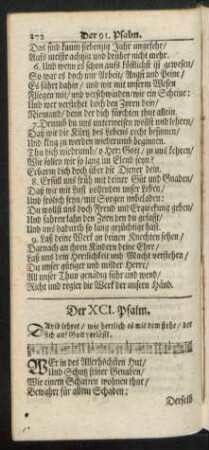 272 Der 91. Psalm.
Das sind kaum siebenzig Jahr ungefehr/
Auffs meist achzig und drüber nicht mehr.
6. Und wenn es schon auffs köstlichst ist gewesen/
So war es doch nur Arbeit/ Angst und Peine/
Es fährt dahin/ und wir mit unserm Wesen
Fliegen mit/ und verschwinden wie ein Scheine:
Und wer verstehet doch den Zoren dein/
Niemand/ denn der dich fürchten thut allein.
7. Derumb du uns unterweisen wollst und lehren/
Daß wir die Kürtz des Lebens recht besinnen/
Und klug zu werden wiederumb beginnen.
Thu dich wiederumb/ o Herr Gott/ zu uns kehren/
Wie sollen wir so lang im Elend seyn?
Erbarm dich doch über die Diener dein.
8. Erfüll uns früh mit deiner Güt und Gnaden/
Daß wir mit Lust vollenden unser Leben/
Und frölich seyn/ mit Sorgen unbeladen:
Du wollst uns doch Freud und Erquickung geben/
Und fahren lahn den Zorn den du gefasst/
Und uns dadurch so lang gezüchtigt hast.
9. Laß deine Werk an deinen Knechten sehen/
Darnach an ihren Kindern deine Ehre/
Laß uns dein Herrlichkeit und Macht verstehen/
Du unser gütiger und milder Herre/
All unser Thun genädig führ und wend/
Richt und regier die Werk der unsern Händ.
Der XCI. Psalm.
David lehret/ wie herrlich es mit dem stehe/ der
sich auf Gott verläst.
WEr in des Allerhöchsten Hut/
Und Schutz seiner Genaden/
Wie einem Schatten wohnen thut/
Bewahrt für allem Schaden:
Derselb